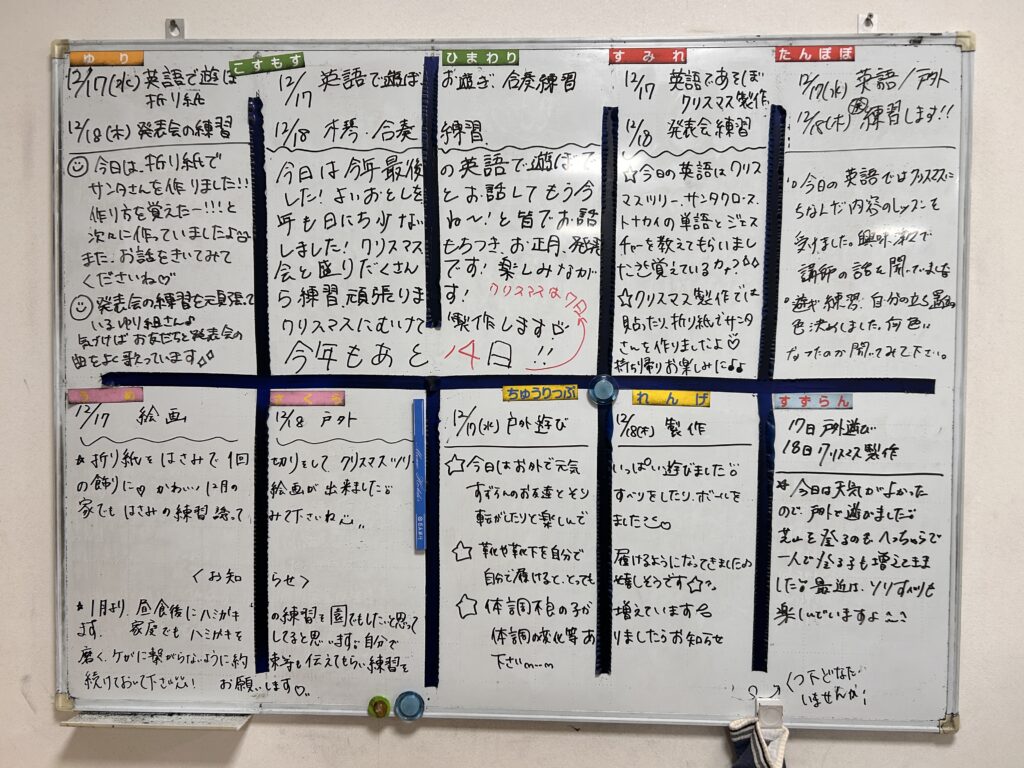 ゆり
12/17(水) 英語で遊ぼ
折り紙
12/18(木) 発表会の練習
今日は、折り紙で
サンタさんを作りました!!
作り方を覚えたー!!!と
次々に作っていましたよ
また、お話をきいてみて
くださいね♡
発表会の練習を元気張って
いるゆり組さん♪
気づけばお友だちと発表会の
曲をよく歌っています♪
こすもす ひまわり
12/17 英語で遊ぼ お遊ぎ、合奏練習
12/18 木琴・合奏 練習
今日は今年最後 の英語で遊ぼで
した!よいおとしを とお話してもう今
年も日にち少ない ね〜!と皆でお話
しました!クリスマス もちつき、お正月、発表
会と盛りだくさん です!楽しみなが
ら練習頑張りま す!
クリスマスは7日
クリスマスにむけて 製作します
今年もあと 14日!!
すみれ
12/17 英語であそぼ
クリスマス製作
12/18 発表会練習
☆今日の英語はクリス
マスツリー、サンタクロース、
トナカイの単語とジェス
チャーを教えてもらいまし
た 覚えているカナ?
☆クリスマス製作では
貼ったり、折り紙でサンタ
さんを作りましたよ♡
持ち帰りお楽しみに♪
たんぽぽ
12/17(水) 英語/戸外
12/18(木) 練習します!!
今日の英語ではクリスマスに
ちなんだ内容のレッスンを
受けました。興味津々で
講師の話を聞いていました
遊ぎ練習:自分の立ち置の
色決めしました。何色に
なったのか聞いてみて下さい。
うめ さくら
12/17 絵画 12/18 戸外
*折り紙をはさみで1回 切りをして、クリスマスツリー
の飾りに♡ かわいい12月の 絵画が出来ました
家でもはさみの練習 みて下さいね
〈お知 らせ〉
*1月より、昼食後にハミガキ の練習を園でもしたいと思って
ます。 家庭でもハミガキを してると思います。自分で
磨く、ケガに繋がらないように約 束等も伝えてもらい練習を
続けておいて下さい! お願いします♡
ちゅうりっぷ れんげ
12/17(水) 戸外遊び 12/18(木) 製作
☆今日はお外で元気 いっぱい遊びました
すずらんのお友達とそり すべりをしたり、ボールを
転がしたりと楽しんで ました♡
☆靴や靴下を自分で 履けるようになってきました
自分で履けると、とっても 嬉しそうです☆
☆体調不良の子が 増えています
体調の変化等あ りましたらお知らせ
下さいm--m
すずらん
17日 戸外遊び
18日 クリスマス製作
*今日は天気がよかった
ので、戸外で遊びました
芝山を登るのもへっちゃらで
一人で登る子も増えてきま
した 最近は、ソリすべりも
楽しんでいますよ
くつ下どなた
いませんか!